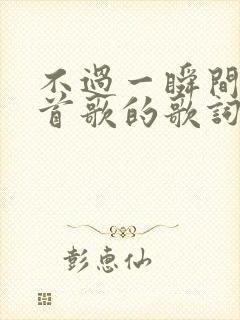 不過一瞬間
首歌的歌詞
彭惠仙